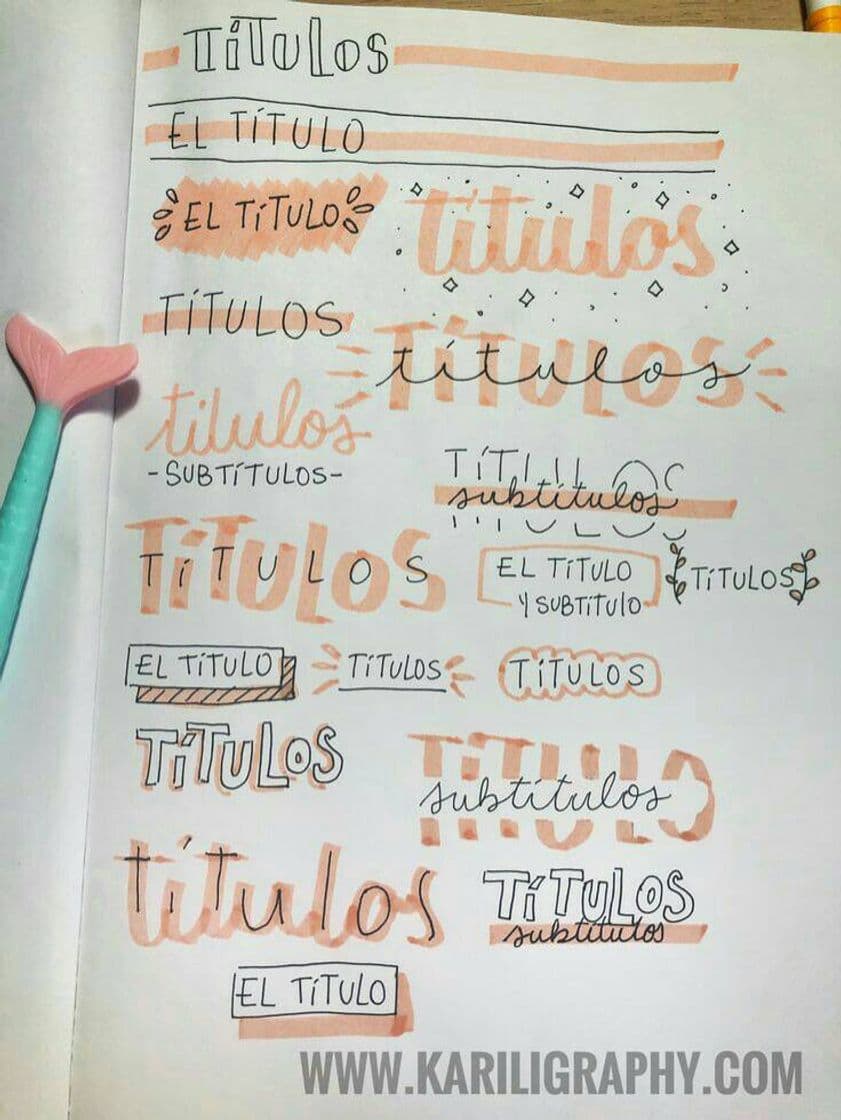 TíTULOS
EL TÍTULO
EL TíTULO
títulos
TÍTULOS
TÍTULOS
títulos
titulos
-SUBTÍTULOS-
TÍTULOS
subtítulos
TíTULOS
TíTULOS
EL TíTULO
Y SUBTíTUlO
TíTULOS
EL TíTULO
TíTULOS
TíTULOS
TíTULOS
TíTULO
subtítulos
títulos
títulos
TíTULOS
subtítulos
EL TíTULO
WWW.KARILIGRAPHY.COM